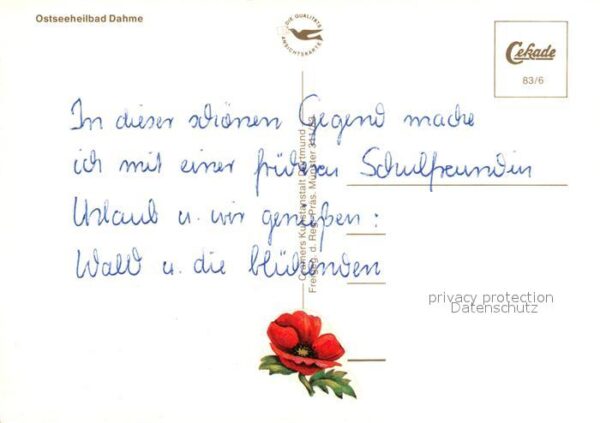 Ostseeheilbad Dahme
DIE QUALITÄTS
ANSICHTSKARTE
Cekade
83/6
In dieser schönen Gegend mache
ich mit einer früheren Schulfreundin
Urlaub u. wir genießen:
Wald u. die blühenden
Cramers Kunstanstalt Dortmund
Freigeg. d. Reg. Präs. Münster
privacy protection
Datenschutz